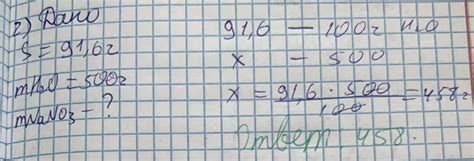 2) Дано
S = 91,6г
mH2O = 500г
mNaNO3 - ?
91,6 — 100г H2O
x — 500
x = 91,6 · 500 / 100 = 458г
Ответ: 458.